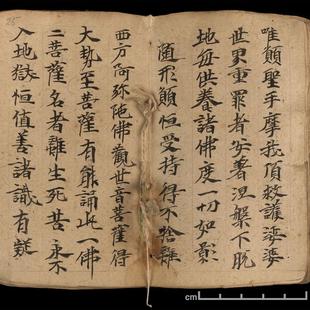 唯願聖手摩我頂救護婆婆
世界重罪者安著涅槃下脱
地每供養諸佛度一切如影
随形願恒受持得不捨離
西方阿弥陁佛觀世音菩薩得
大勢至菩薩有能誦此一佛
二菩薩名者離生死苦永不
入地獄恒值善諸識有疑
cm